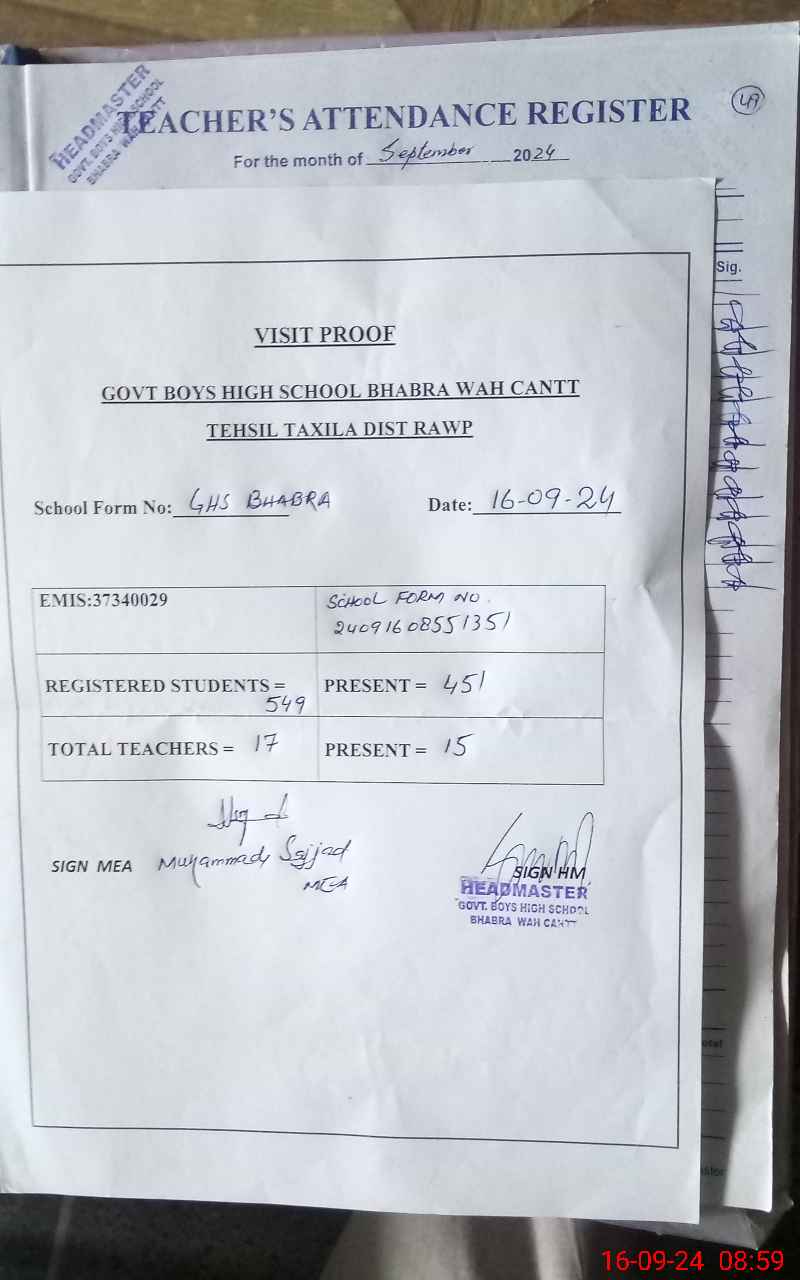 HEADMASTER
GOVT. BOYS HIGH SCHOOL
BHABRA WAH CANTT
TEACHER'S ATTENDANCE REGISTER
49
For the month of September 2024
Sig.
VISIT PROOF
GOVT BOYS HIGH SCHOOL BHABRA WAH CANTT
TEHSIL TAXILA DIST RAWP
School Form No: GHS BHABRA Date: 16-09-24
EMIS:37340029 SCHOOL FORM NO.
24091608551351
REGISTERED STUDENTS = 549 PRESENT = 451
TOTAL TEACHERS = 17 PRESENT = 15
SIGN MEA Muhammad Sajjad
MEA
SIGN HM
HEADMASTER
GOVT. BOYS HIGH SCHOOL
BHABRA WAH CANTT
16-09-24 08:59